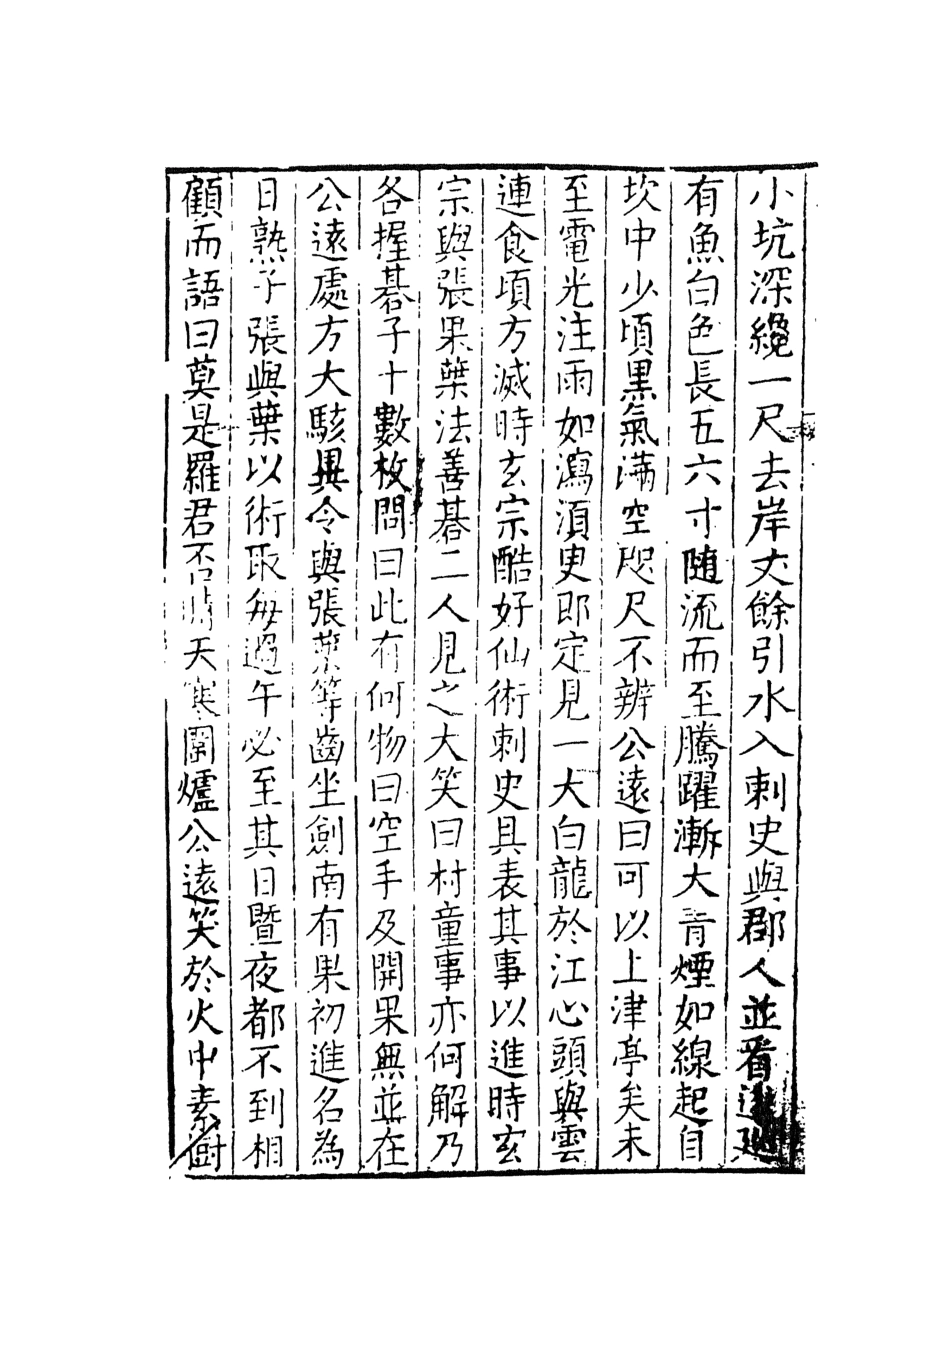 小坑深纔一尺去岸丈餘引水入刺史與郡人並看逡廵
有魚白色長五六寸随流而至騰躍漸大青煙如線起自
坎中少頃黒氣满空咫尺不辨公遠曰可以上津亭矣未
至電光注雨如瀉湏臾即定見一大白龍於江心頭與雲
連食頃方滅時玄宗酷好仙術刺史具表其事以進時玄
宗與張果葉法善碁二人見之大笑曰村童事亦何解乃
各握碁子十數枚問曰此有何物曰空手及開果無並在
公遠處方大駭異令與張葉等齒坐劍南有果初進名為
日熟子張與葉以術取每過午必至其日暨夜都不到相
顧而語曰莫是羅君否時天寒圍爐公遠笑於火中素樹